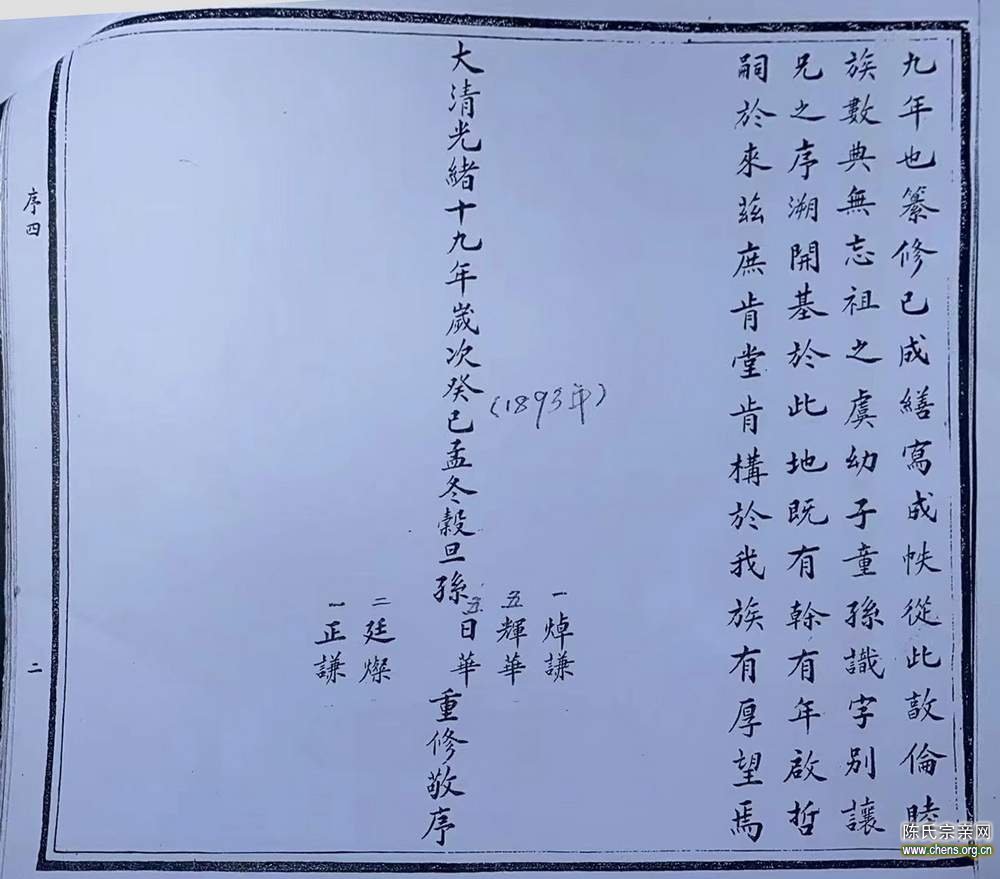 九年也纂修已成繕寫成帙從此敦倫睦
族數典無忘祖之虞幼子童孫識字別讓
兄之序溯開基於此地既有榦有年啟哲
嗣於來茲庶肯堂肯構於我族有厚望焉
(1893年)
大清光緒十九年歲次癸巳孟冬穀旦孫
一焯謙
五輝華
五日華
二廷燦
一正謙
重修敬序
序四
二
陈氏宗亲网
www.chens.org.cn